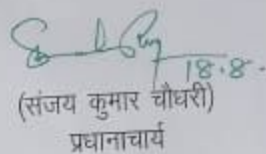 18.8.
(संजय कुमार चौधरी)
प्रधानाचार्य